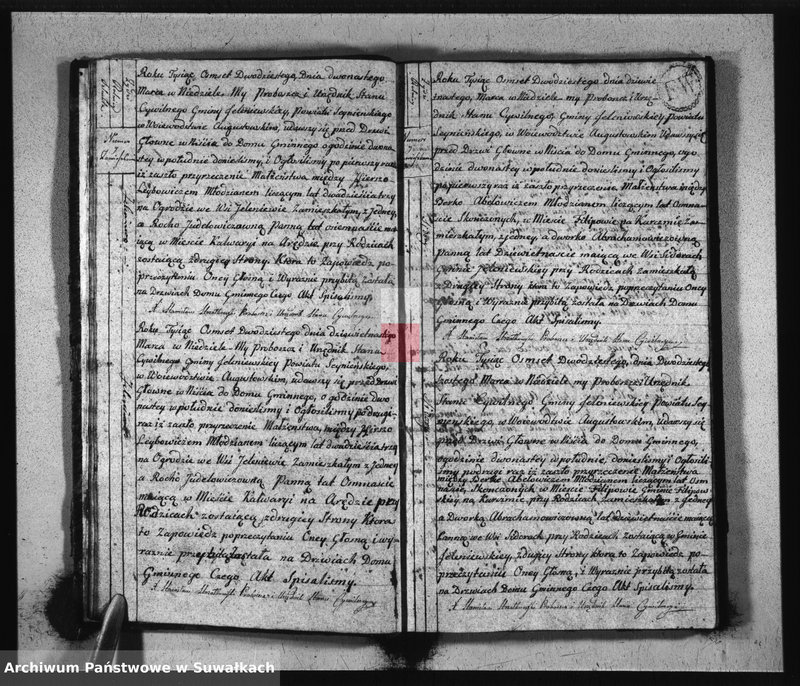 Roku Tysiąc Osmset Dwodziestego, Dnia dwonastego
Marca w Niedziele My Proboszcz i Urzędnik Stanu
Cywilnego Gminy Jeleniewskiey, Powiatu Seynienskiego
w Woiewodztwie Augustowskim, udawszy się przed Drzwi
Głowne w Niscia do Domu Gminnego o godzinie dwona
stey w południe donieslimy i Ogłosilismy po pierwszy raz
iż zaszło przyrzeczenie Małżeństwa między Hierszo
Leybowiczem Młodzianem liczącym lat dwadziescia trzy
na Ogrodzie we Wsi Jeleniewie Zamieszkałym, z Jedney,
a Rocho Judelowiczowną Panną lat osiemnascie ma
iącą w Miescie Kalwaryi na Arędzie przy Rodzicach
zostaiącą z drugiey Strony. Ktora to Zapowiedz po
przeczytaniu Oney Głosną i Wyraznie przybitą została
na Drzwiach Domu Gminnego Czego Akt Spisalismy.
Roku Tysiąc Osmset Dwodziestego dnia dziewietnastego
Marca w Niedziele My Proboszcz i Urzędnik Stanu
Cywilnego Gminy Jeleniewskiey Powiatu Seynienskiego,
w Woiewodztwie Augustowskim, udawszy się przed Drzwi
Głowne w Niscia do Domu Gminnego, o godzinie dwo
nastey w południe donieslimy i Ogłosilismy po drugi
raz iż zaszło przyrzeczenie Małżenstwa, między Hierszo
Leybowiczem Młodzianem liczącym lat dwadziescia trzy
na Ogrodzie we Wsi Jeleniewie Zamieszkałym z Jedney
a Rocho Judelowiczowną Panną lat Omnascie
maiącą w Miescie Kalwaryi na Arędzie przy
Rodzicach zostaiącą z drugiey Strony Ktora
to Zapowiedz po przeczytaniu Oney Głosną i wy-
raznie przybitą została na Drzwiach Domu
Gminnego Czego Akt Spisalismy.
Roku Tysiąc Osmset Dwodziestego dnia dziewie
tnastego, Marca w Niedziele my Proboszcz i Urzę
dnik Stanu Cywilnego, Gminy Jeleniewskiey Powiatu
Seynienskiego, w Woiewodztwie Augustowskim Udawszy się
przed Drzwi Głowne w Niscia do Domu Gminnego, ogo
dzinie dwonastey w południe doniesliśmy i Ogłosilismy
po pierwszy raz iż zaszło przyrzeczenie Małżenstwa między
Berko Abelowiczem Młodzianem liczącym lat Omna
scie Skonczonych, w Miescie Filipowie na Karczmie Za
mieszkałym, z jedney, a dworko Abrahamowiczowną
panną lat Dziewietnascie maiącą we Wsi Sidorach
Gminie Jeleniewskiey przy Rodzicach zamieszkałą
z Drugiey Strony ktora to Zapowiedz po przeczytaniu Oney
Głosną i Wyraznie przybitą została na Drzwiach Domu
Gminnego Czego Akt Spisalismy.
Roku Tysiąc Osmset Dwodziestego, dnia Dwodziest
szostego Marca w Niedziele my Proboszcz i Urzędnik
Stanu Cywilnego Gminy Jeleniewskiey Powiatu Sey
nienskiego, w Woiewodztwie Augustowskim, Udawszy się
przed Drzwi Głowne w Niscia do Domu Gminnego,
ogodzinie dwonastey w południe doniesliśmy i Ogłosili
smy po drugi raz iż zaszło przyrzeczenie Małżenstwa
między Berko Abelowiczem Młodzianem liczącym lat Osm
nascie Skonczonych w Miescie Filipowie Gminie Filipow
skiey na Karczmie przy Rodzicach Zamieszkałym z Jedney
a Dworką Abrachamowiczowną lat dziewietnascie maiącą
Panną we Wsi Sidorach przy Rodzicach zostaiącą w Gminie
Jeleniewskiey, z drugiey Strony ktora to Zapowiedz po-
przeczytaniu Oney Głosną, i Wyraznie przybitą została
na Drzwiach Domu Gminnego Czego Akt Spisalismy.
Archiwum Państwowe w Suwałkach